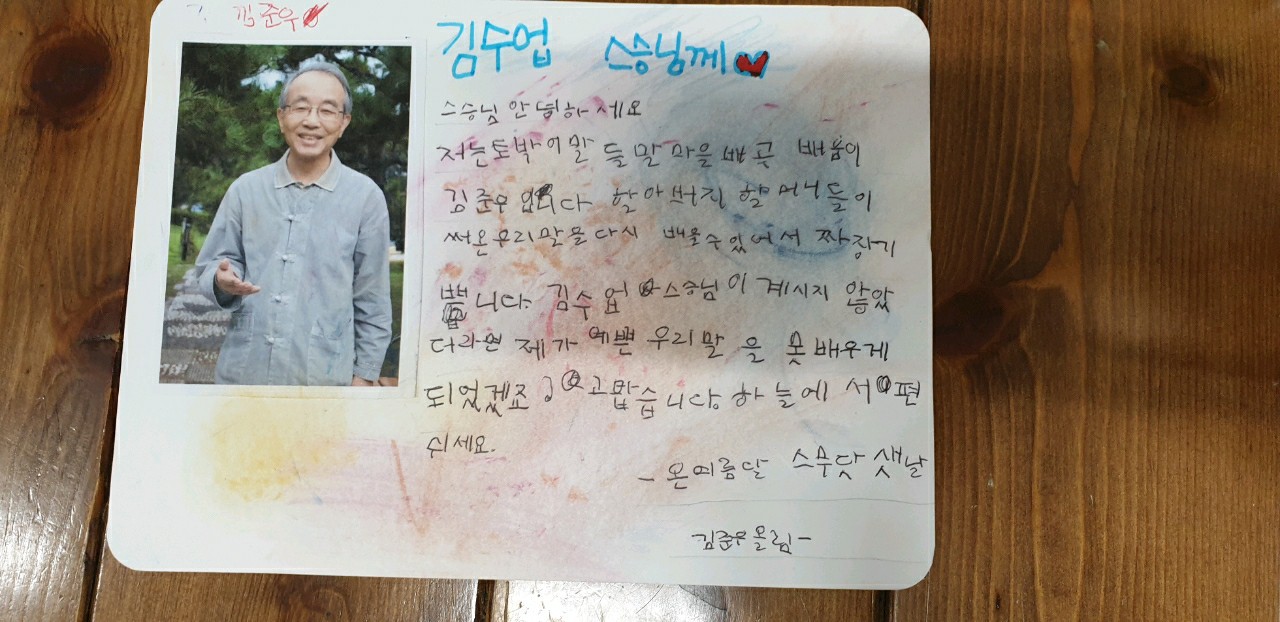 김준우
김수업 스승님께
스승님 안녕하세요
저는 토박이말 들말마을배곳 배움이
김준우입니다 할아버지 할머니들이
써온 우리말을 다시 배울 수 있어서 짜장 기
쁩니다. 김수업 스승님이 계시지 않았
더라면 제가 예쁜 우리말을 못 배우게
되었겠죠? 고맙습니다. 하늘에서 편
쉬세요.
- 온여름달 스무닷샛날
김준우올림-